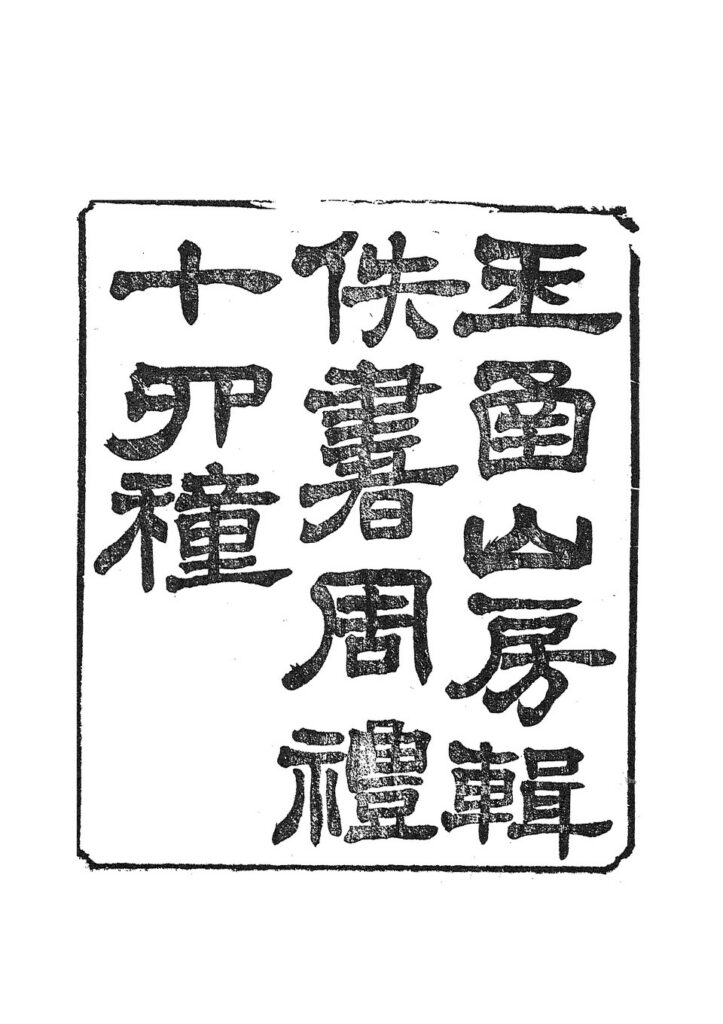 玉函山房輯
佚書周禮
十四種